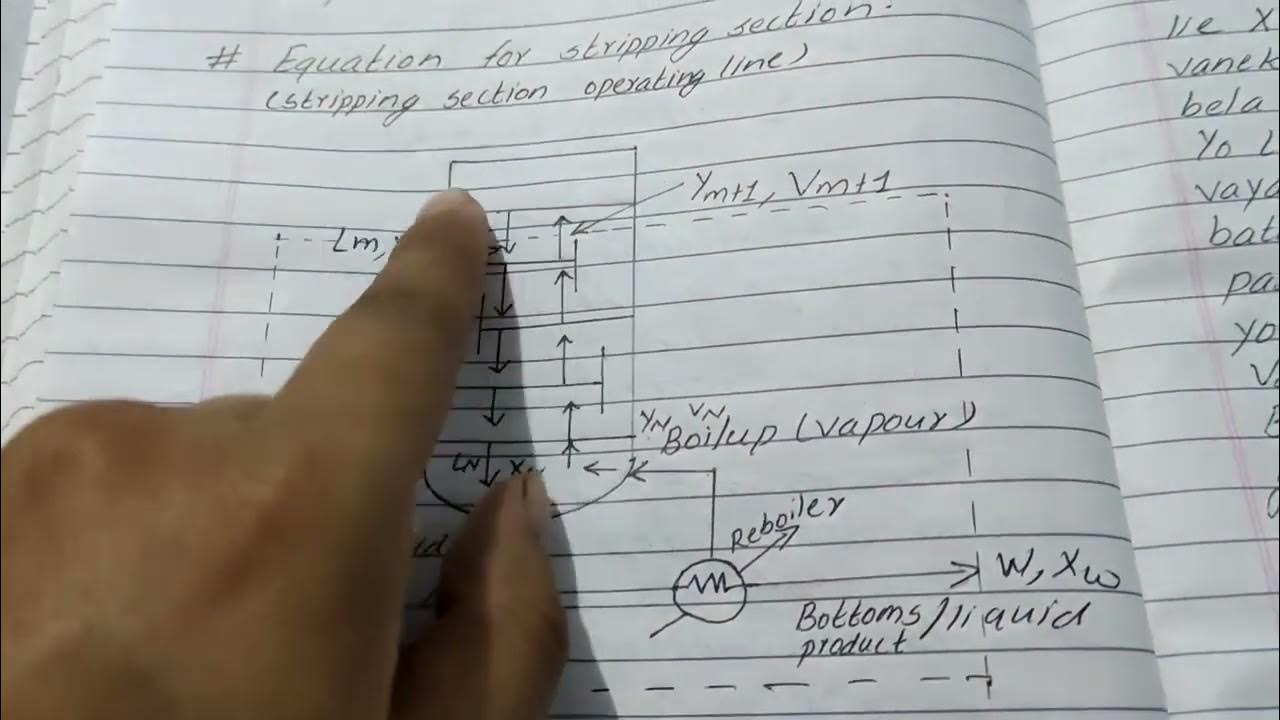 # Equation for stripping section.
(stripping section operating line)
Ym+1, Vm+1
Lm,
YN VN
Boilup (vapour)
LN
Reboiler
W, Xw
Bottoms/liquid
product
lie X
vanek
bela
Yo
vaya
bat
pa
yo